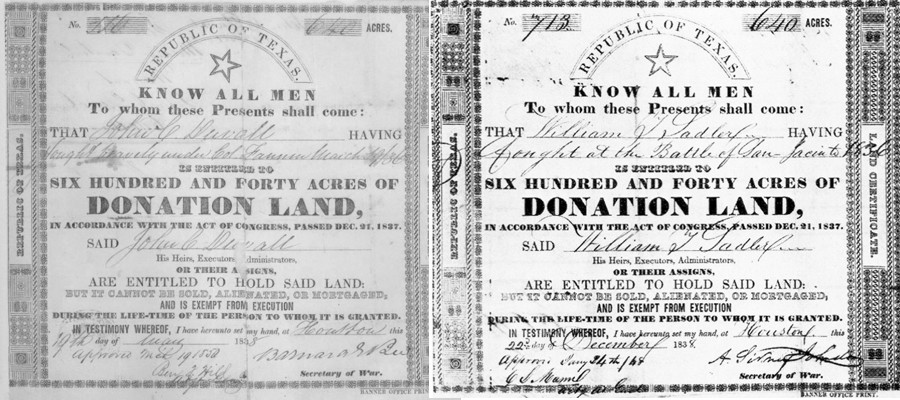 No. 640 ACRES.
REPUBLIC OF TEXAS.
KNOW ALL MEN
To whom these Presents shall come:
THAT John C Duvall HAVING
fought bravely under Col Fannin March
IS ENTITLED TO
SIX HUNDRED AND FORTY ACRES OF
DONATION LAND,
IN ACCORDANCE WITH THE ACT OF CONGRESS, PASSED DEC. 21, 1837.
SAID John C Duvall
His Heirs, Executors, dministrators,
OR THEIR A SIGNS,
ARE ENTITLED TO HOLD SAID LAND:
BUT IT CANNOT BE SOLD, ALIENATED, OR MORTGAGED;
AND IS EXEMPT FROM EXECUTION
DURING THE LIFE-TIME OF THE PERSON TO WHOM IT IS GRANTED.
IN TESTIMONY WHEREOF, I have hereunto set my hand, at Houston this
day of May 1838
Barnard E Bee
Secretary of War.
BANNER OFFICE PRINT.
REPUBLIC OF TEXAS.
No. 713 640 ACRES.
REPUBLIC OF TEXAS.
KNOW ALL MEN
To whom these Presents shall come:
THAT William T Sadler HAVING
fought at the Battle of San Jacinto 1836
IS ENTITLED TO
SIX HUNDRED AND FORTY ACRES OF
DONATION LAND,
IN ACCORDANCE WITH THE ACT OF CONGRESS, PASSED DEC. 21, 1837.
SAID William T Sadler
His Heirs, Executors, Administrators,
OR THEIR ASSIGNS,
ARE ENTITLED TO HOLD SAID LAND:
BUT IT CANNOT BE SOLD, ALIENATED, OR MORTGAGED;
AND IS EXEMPT FROM EXECUTION
DURING THE LIFE-TIME OF THE PERSON TO WHOM IT IS GRANTED.
IN TESTIMONY WHEREOF, I have hereunto set my hand, at Houston this
22 day of December 1838.
A Sidney Johnston
Secretary of War.
BANNER OFFICE PRINT.
REPUBLIC OF TEXAS.
LAND CERTIFICATE.